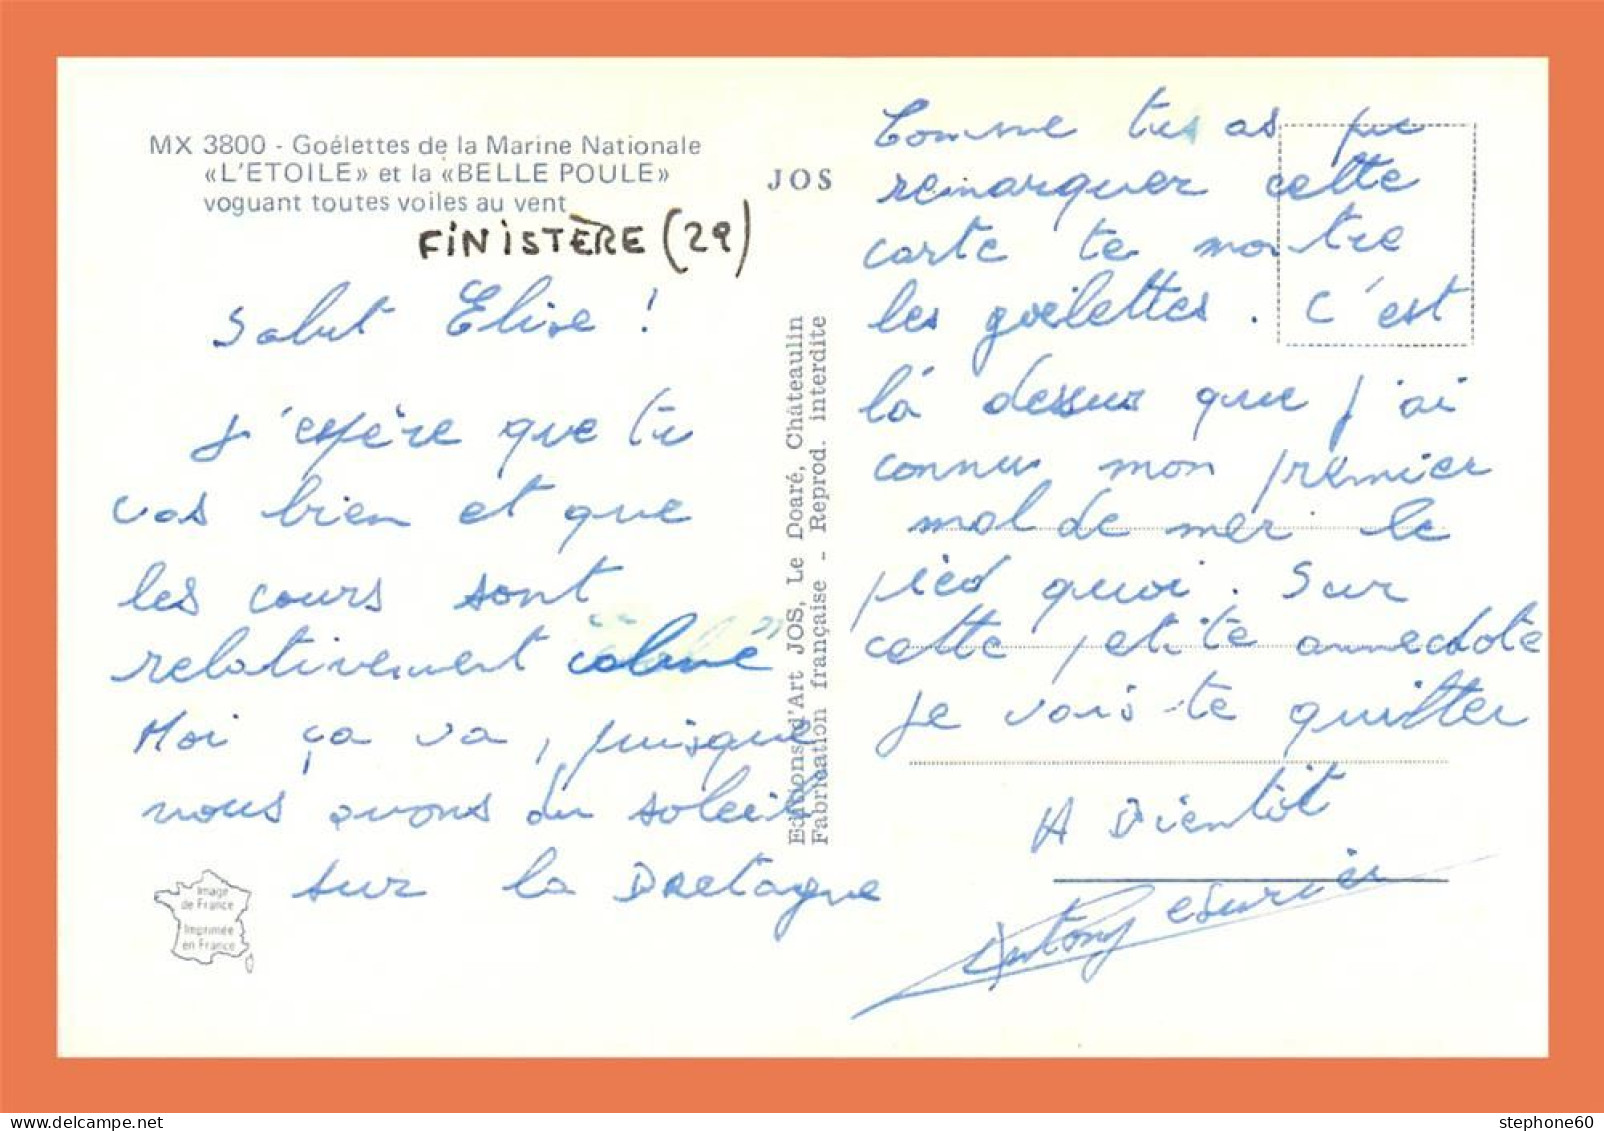 MX 3800 - Goélettes de la Marine Nationale
«L'ETOILE» et la «BELLE POULE»
voguant toutes voiles au vent
FINISTÈRE (29)
Salut Elise !
J'espère que tu
vas bien et que
les cours sont
relativement "calme"
Moi ça va, puisque
nous avons du soleil
sur la Bretagne
Image
de France
Imprimée
en France
JOS
Editions d'Art JOS, Le Doaré, Châteaulin
Fabrication française - Reprod. interdite
Comme tu as pu
remarquer cette
carte te montre
les goélettes. C'est
là dessus que j'ai
connu mon premier
mal de mer le
pied quoi. Sur
cette petite annecdote
je vais te quitter
A Bientôt
Antony
stephone60